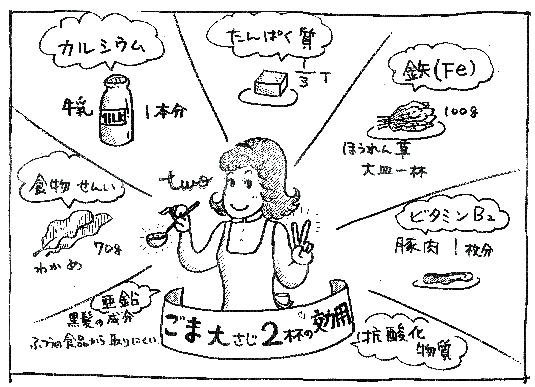 カルシウム
牛乳
MILK
1本分
たんぱく質
1/3丁
鉄(Fe)
100g
ほうれん草
大皿一杯
食物せんい
70g
わかめ
two
ビタミンB₂
豚肉 1枚分
亜鉛
黒髪の成分
ふつうの食品から取りにくい
ごま大さじ2杯の効用
抗酸化
物質